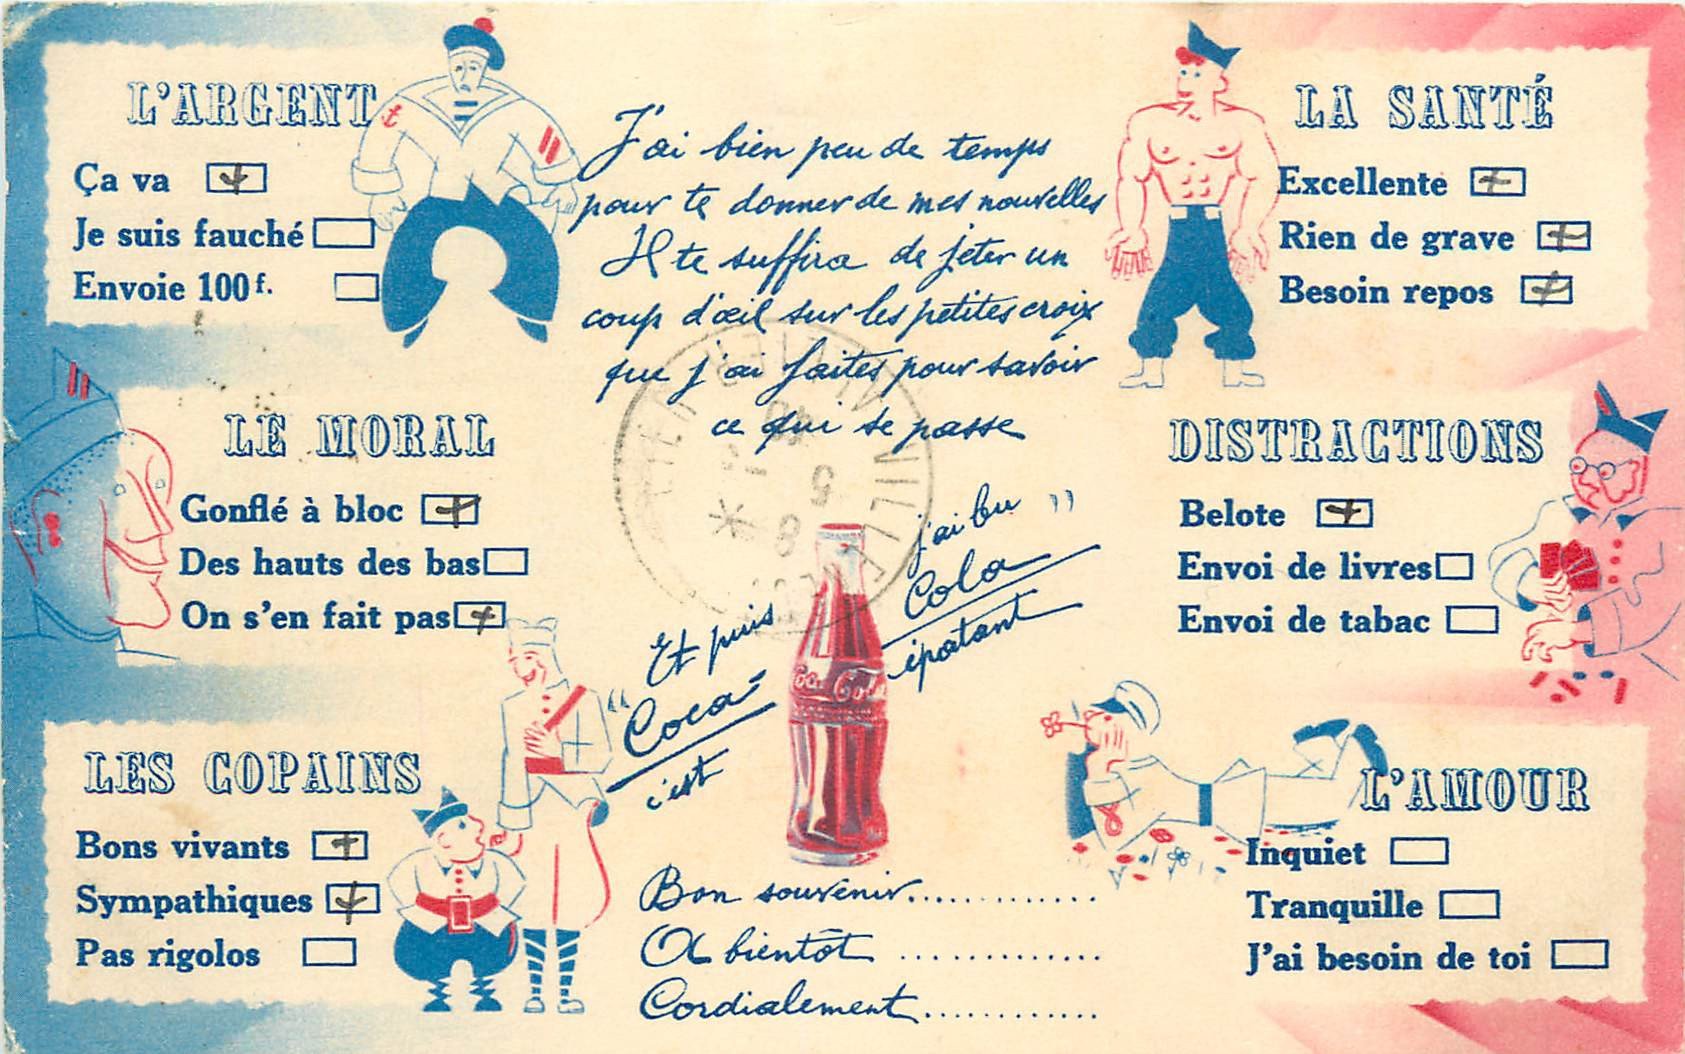 L'ARGENT
Ça va
Je suis fauché
Envoie 100 f.
LE MORAL
Gonflé à bloc
Des hauts des bas
On s'en fait pas
LES COPAINS
Bons vivants
Sympathiques
Pas rigolos
J'ai bien peu de temps
pour te donner de mes nouvelles
Il te suffira de jeter un
coup d'œil sur les petites croix
que j'ai faites pour savoir
ce qui se passe
Et puis j'ai bu
"Coca-Cola"
c'est épatant
Coca-Cola
Bon souvenir............
A bientôt ............
Cordialement............
LA SANTÉ
Excellente
Rien de grave
Besoin repos
DISTRACTIONS
Belote
Envoi de livres
Envoi de tabac
L'AMOUR
Inquiet
Tranquille
J'ai besoin de toi